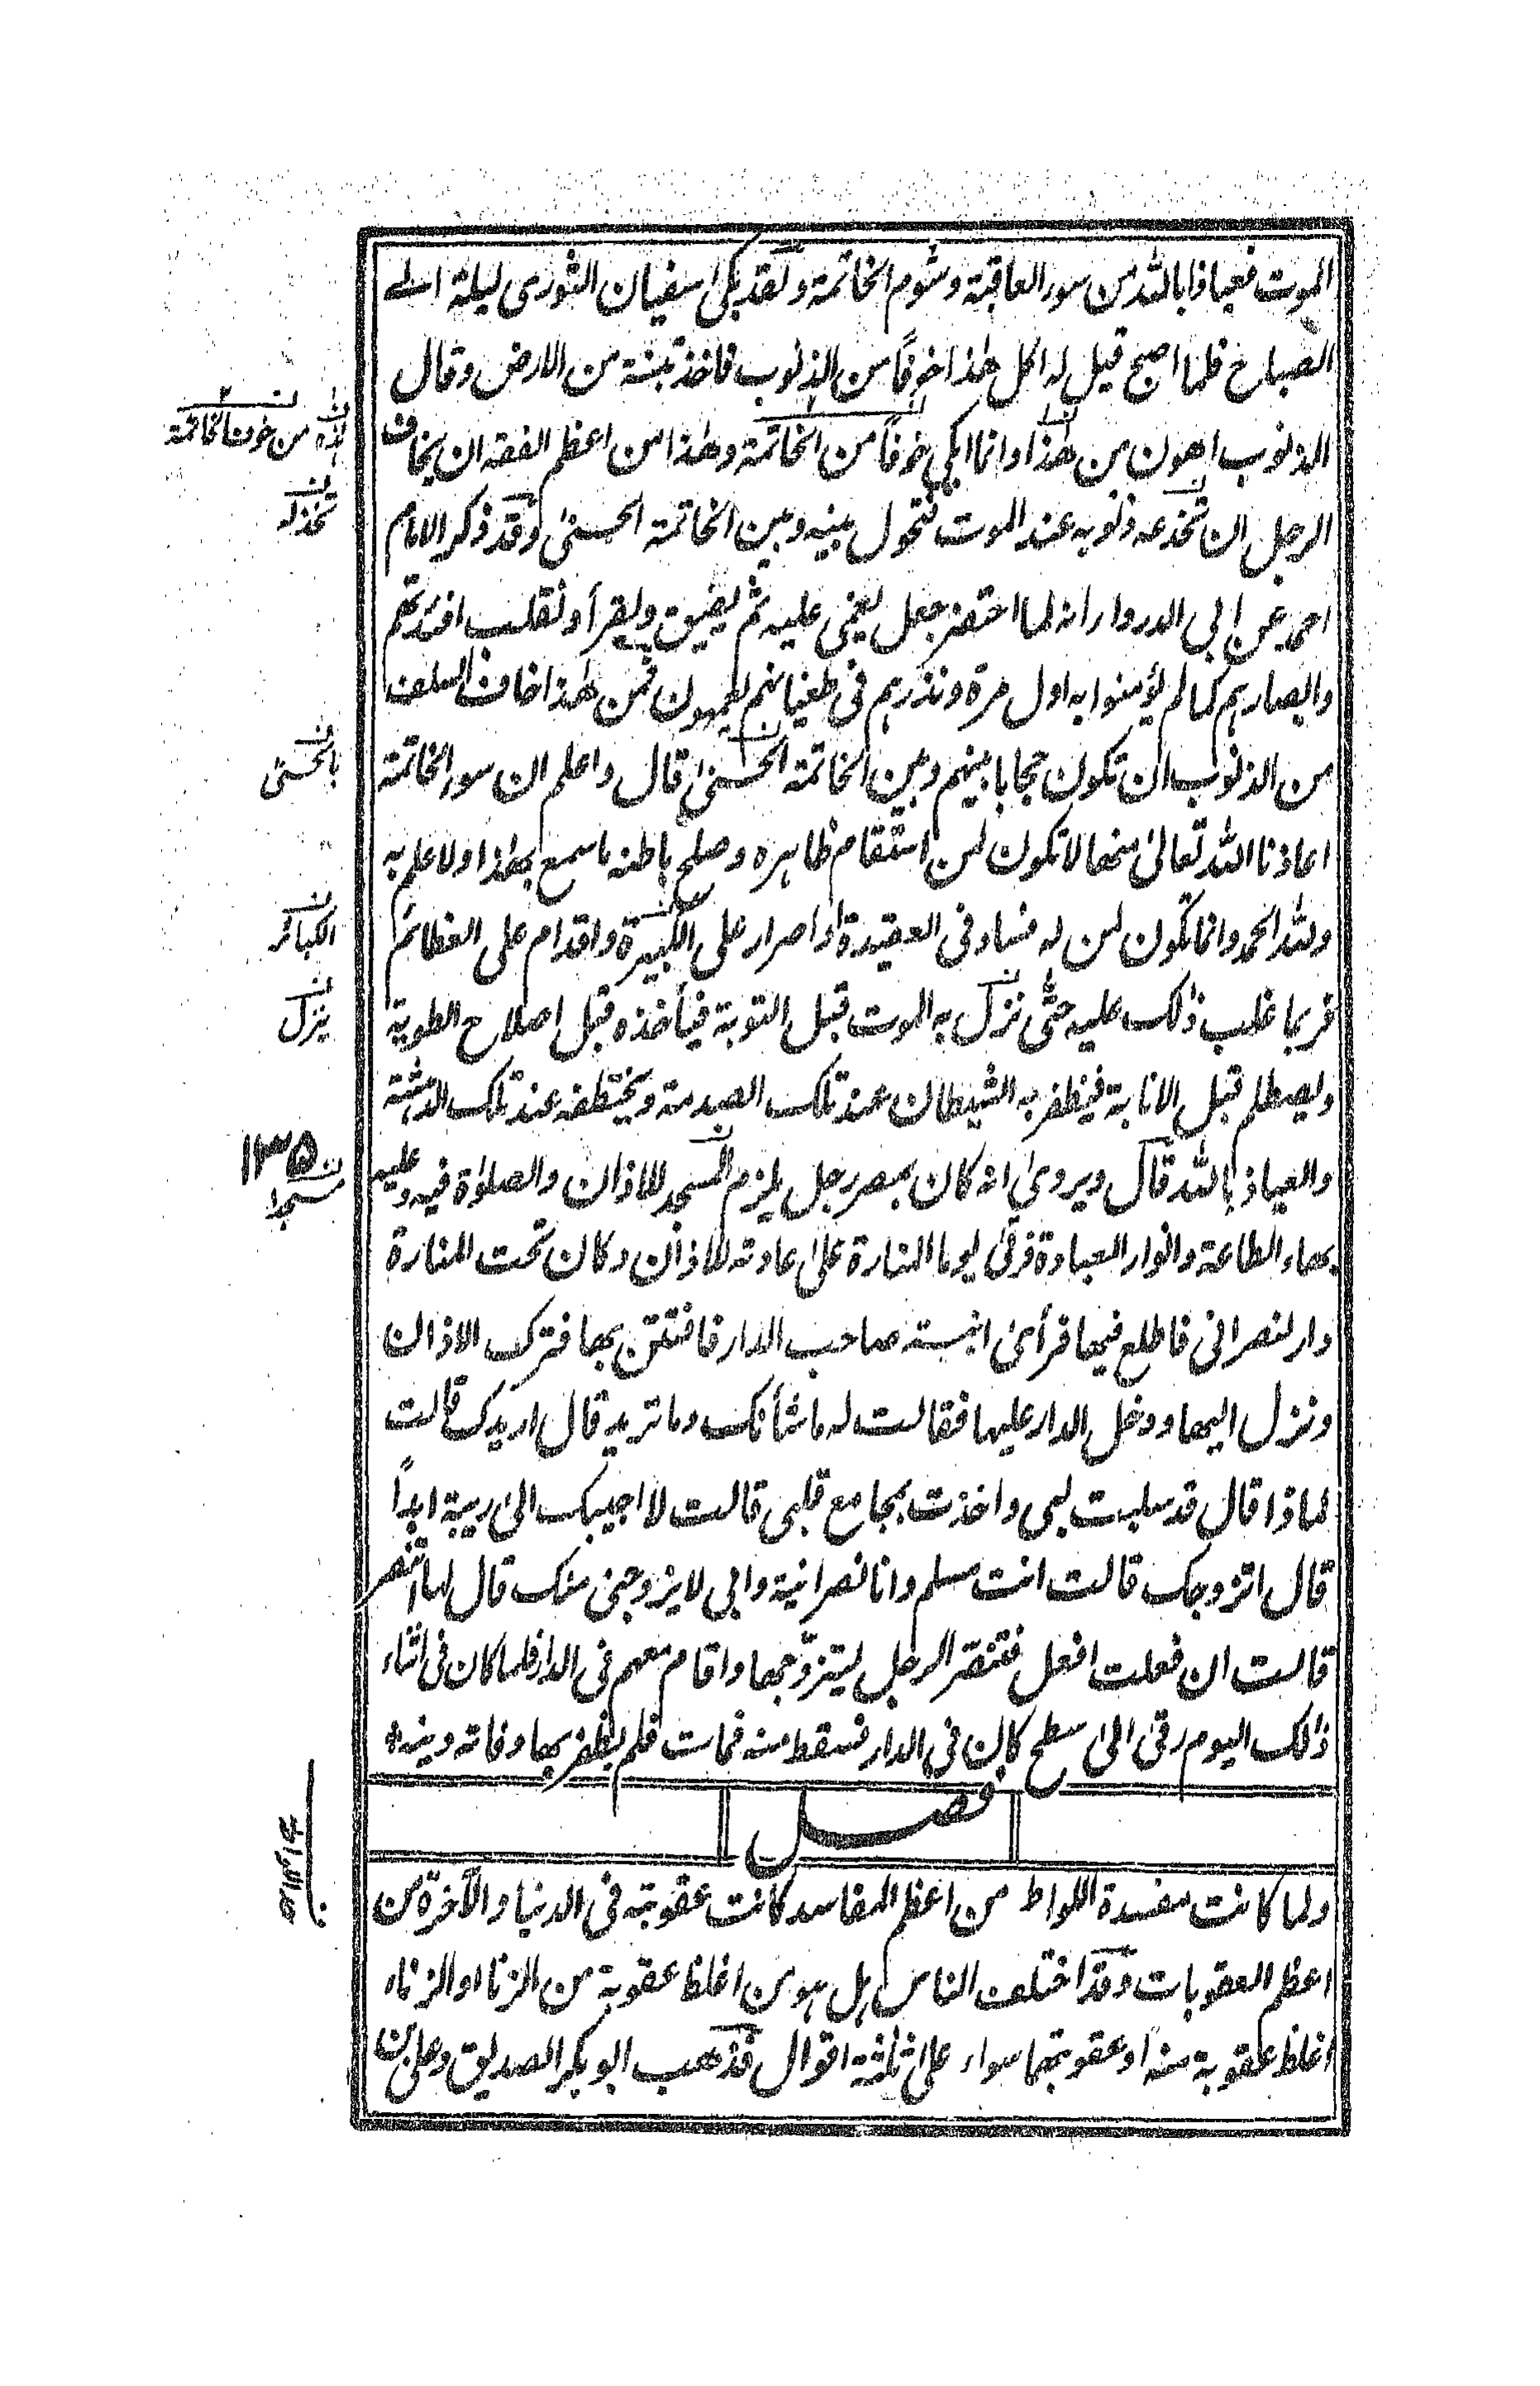 الموت فعياذا بالله من سوء العاقبة وشوم الخاتمة ولقد بكى سفيان الثورى ليلة الى
الصباح فلما اصبح قيل له اكل هذا خوفاً من الذنوب فاخذ تبنة من الارض وقال
الذنوب اهون من هذا وانما ابكي خوفاً من الخاتمة وهذا من اعظم الفقه ان يخاف
الرجل ان تخذعه ذنوبه عند الموت فتحول بينه وبين الخاتمة الحسنى وقد ذكر الامام
احمد عن ابى الدرداء انه لما احتضر جعل يغمى عليه ثم يفيق ويقرأ ونقلب افئدتهم
وابصارهم كما لم يؤمنوا به اول مرة ونذرهم فى طغيانهم يعمهون فمن هذا خاف السلف
من الذنوب ان تكون حجابا بينهم وبين الخاتمة الحسنى قال واعلم ان سوء الخاتمة
اعاذنا الله تعالى منها لا تكون لمن استقام ظاهره وصلح باطنه ما سمع بهذا ولا علم به
ولله الحمد وانما تكون لمن له فساد فى العقيدة او اصرار على الكبيرة واقدام على العظائم
فربما غلب ذلك عليه حتى نزل به الموت قبل التوبة فيأخذه قبل اصلاح الطوية
ويصطلم قبل الانابة فيظفر به الشيطان عند تلك الصدمة ويختطفه عند تلك الدهشة
والعياذ بالله قال ويروى انه كان بمصر رجل يلزم المسجد للاذان والصلوٰة فيه وعليه
بهاء الطاعة وانوار العبادة فرقى يوما المنارة على عادته للاذان وكان تحت المنارة
دار لنصرانى فاطلع فيها فرأى ابنة صاحب الدار فافتتن بها فترك الاذان
ونزل اليها ودخل الدار عليها فقالت له ما شأنك وما تريد قال اريدك قالت
لماذا قال قد سلبت لبى واخذت بمجامع قلبى قالت لا اجيبك الى ريبة ابداً
قال اتزوجك قالت انت مسلم وانا نصرانية وابى لا يزوجنى منك قال لها اتنصر
قالت ان فعلت افعل فتنصّر الرجل ليتزوّجها واقام معهم فى الدار فلما كان فى اثناء
ذلك اليوم رقى الى سطح كان فى الدار فسقط منه فمات فلم يظفر بها وفاته دينه
فصل
ولما كانت مفسدة اللواط من اعظم المفاسد كانت عقوبته فى الدنيا والآخرة من
اعظم العقوبات وقد اختلف الناس هل هو من اغلظ عقوبة من الزنا او الزناء
اغلظ عقوبة منه او عقوبتهما سواء على ثلثة اقوال فذهب ابو بكر الصديق وعلى بن
من خوف الخاتمة
تخذله
بالحسنى
الكبائر
ينزل
١٣٥
مسجدا